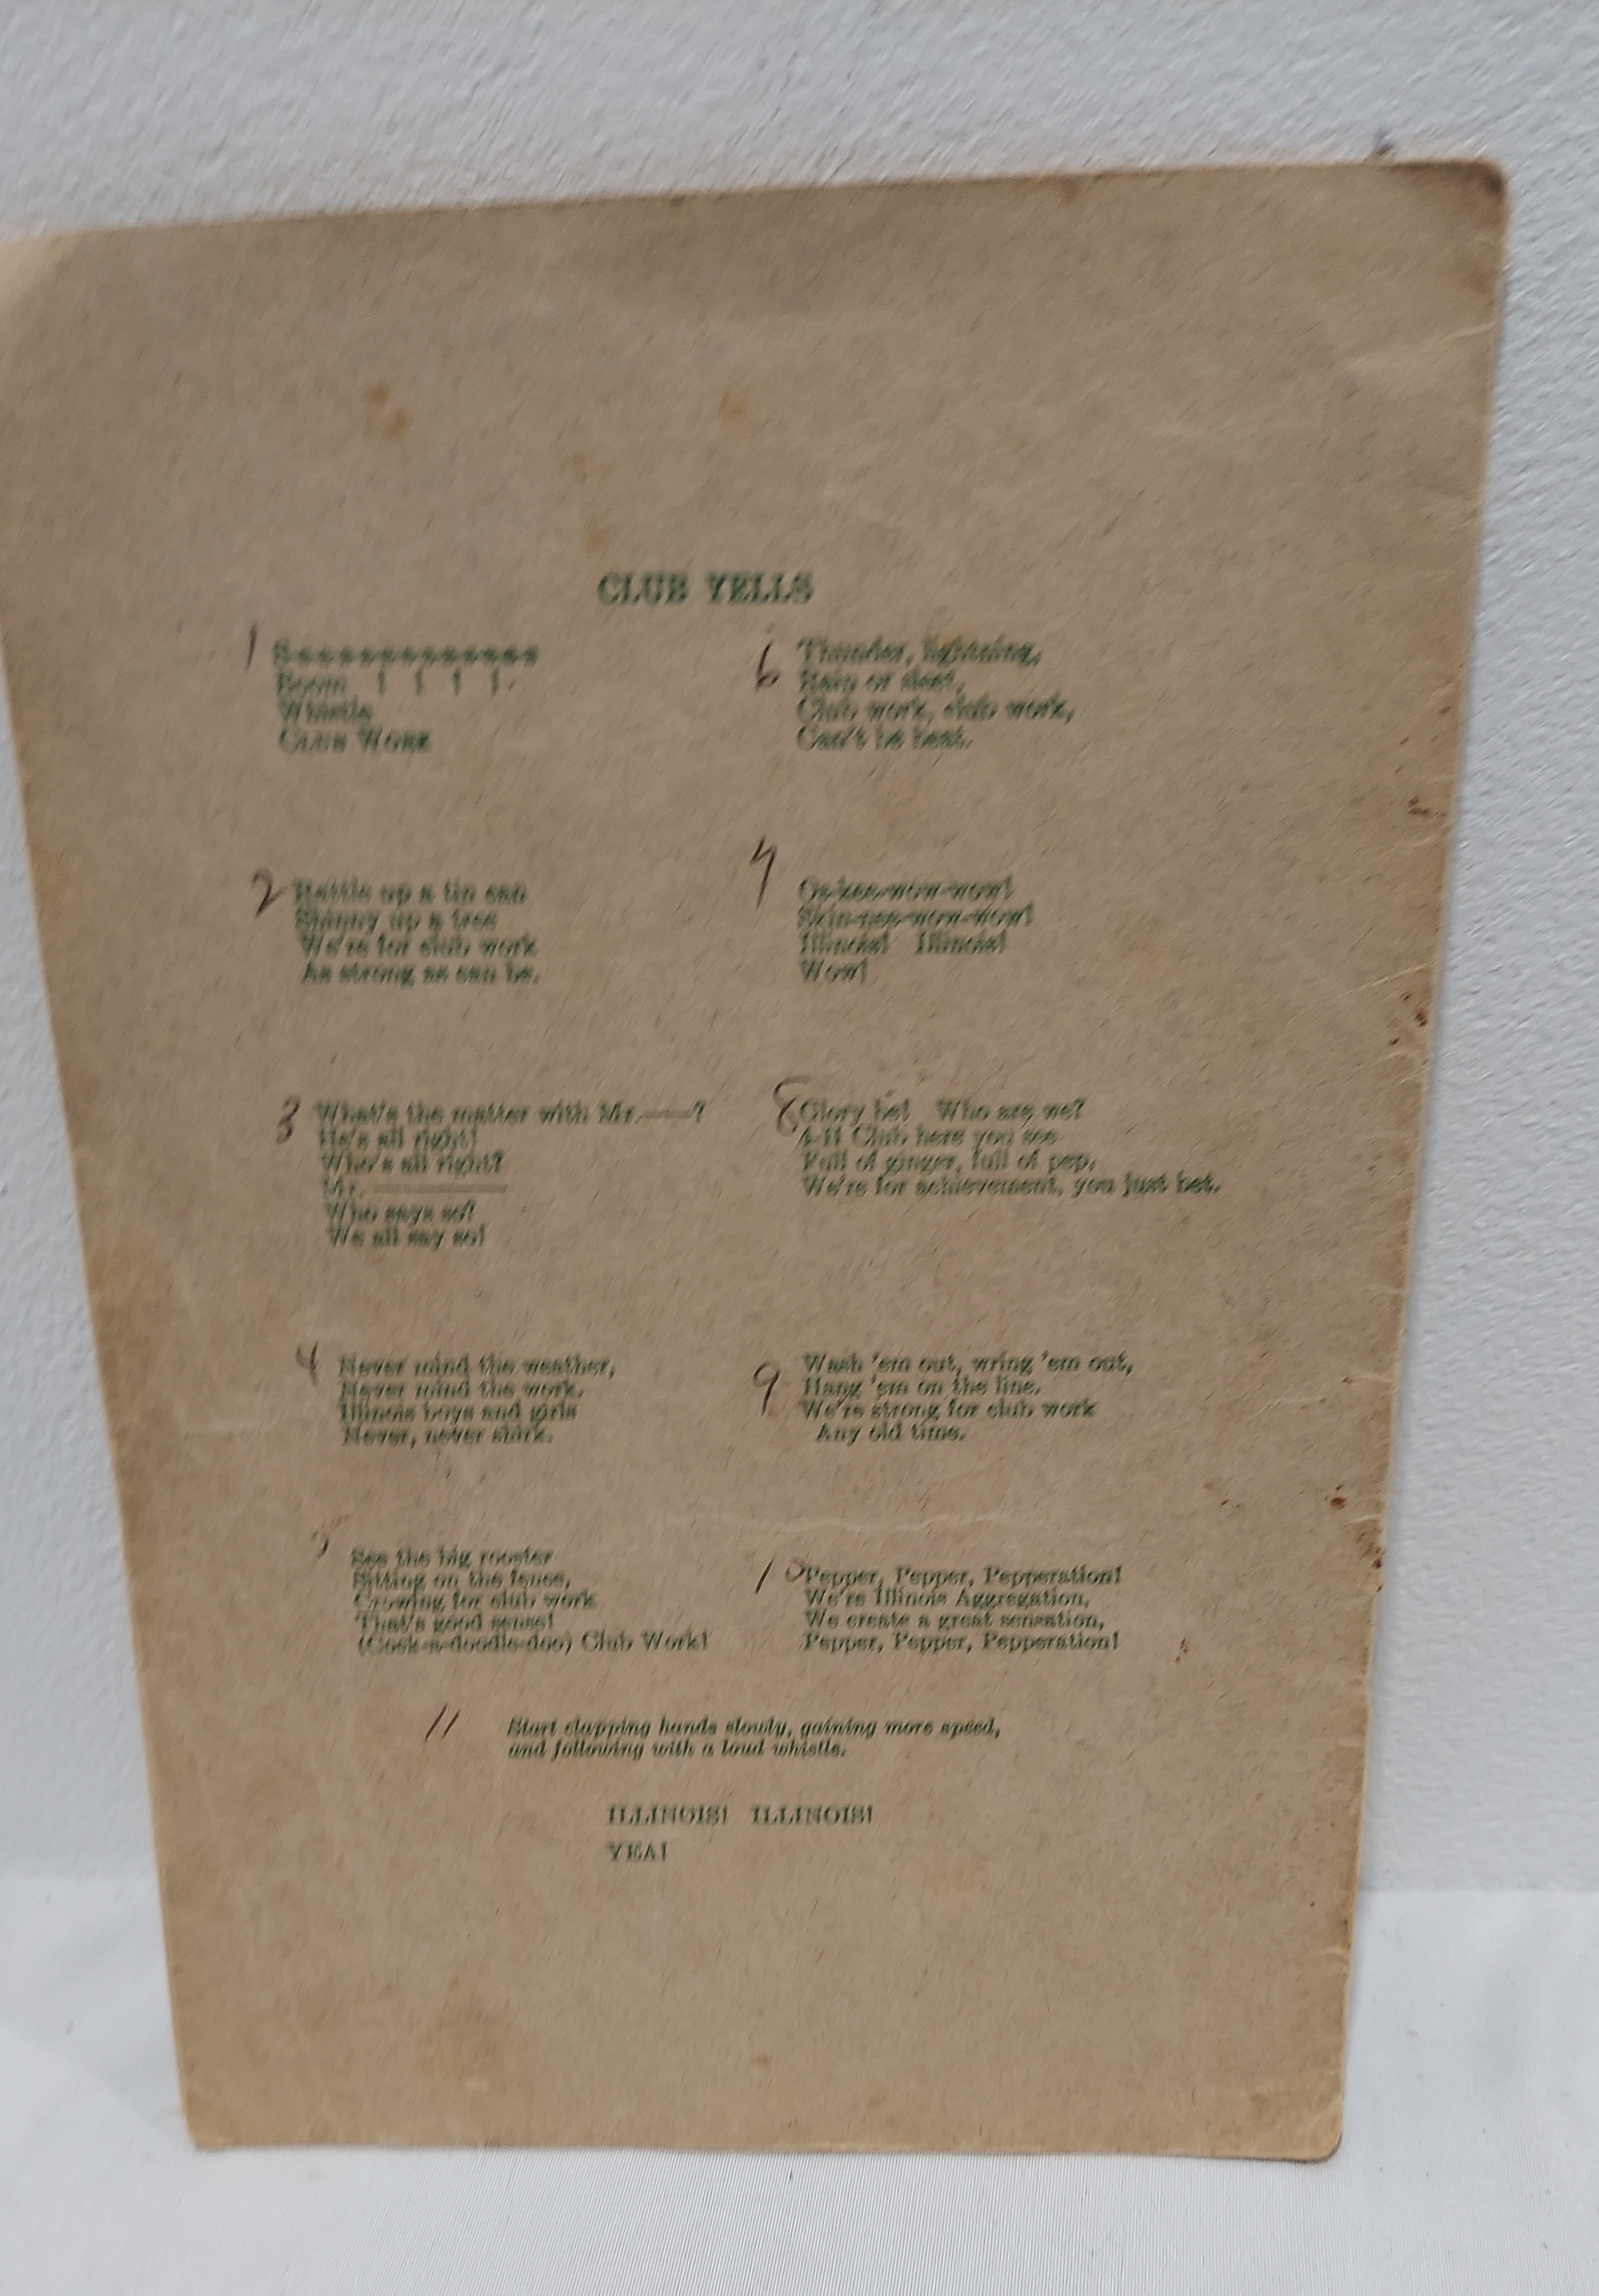 CLUB YELLS
1 Sssssssssssss
Boom ! ! ! !
Whistle
CLUB WORK
2 Rattle up a tin can
Shinny up a tree
We're for club work
As strong as can be.
3 What's the matter with Mr.——?
He's all right!
Who's all right?
Mr. ————
Who says so?
We all say so!
4 Never mind the weather,
Never mind the work.
Illinois boys and girls
Never, never shirk.
5 See the big rooster
Sitting on the fence,
Crowing for club work
That's good sense!
(Cock-a-doodle-doo) Club Work!
6 Thunder, lightning,
Rain or sleet,
Club work, club work,
Can't be beat.
7 Os-kee-wow-wow!
Skin-nee-wow-wow!
Illinois! Illinois!
Wow!
8 Glory be! Who are we?
4-H Club here you see
Full of ginger, full of pep,
We're for achievement, you just bet.
9 Wash 'em out, wring 'em out,
Hang 'em on the line.
We're strong for club work
Any old time.
10 Pepper, Pepper, Pepperation!
We're Illinois Aggregation,
We create a great sensation,
Pepper, Pepper, Pepperation!
11 Start clapping hands slowly, gaining more speed,
and following with a loud whistle.
ILLINOIS! ILLINOIS!
YEA!